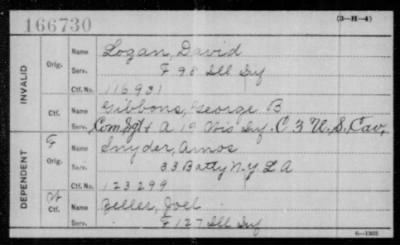 166730
(3-H-4)
INVALID
Orig.
Name Logan, David
Serv. F 98 Ill Inf
Ctf. No. 116931
Ctf.
Name Gibbons, George B
Serv. Com Sgt & A 19 Wis Inf, C 3 U.S. Cav,
DEPENDENT
Orig.
Name Snyder, Amos
Serv. 33 Batty N.Y L A
Ctf. No. 123299
W
Ctf.
Name Zeller, Joel
Serv. F 127 Ill Inf